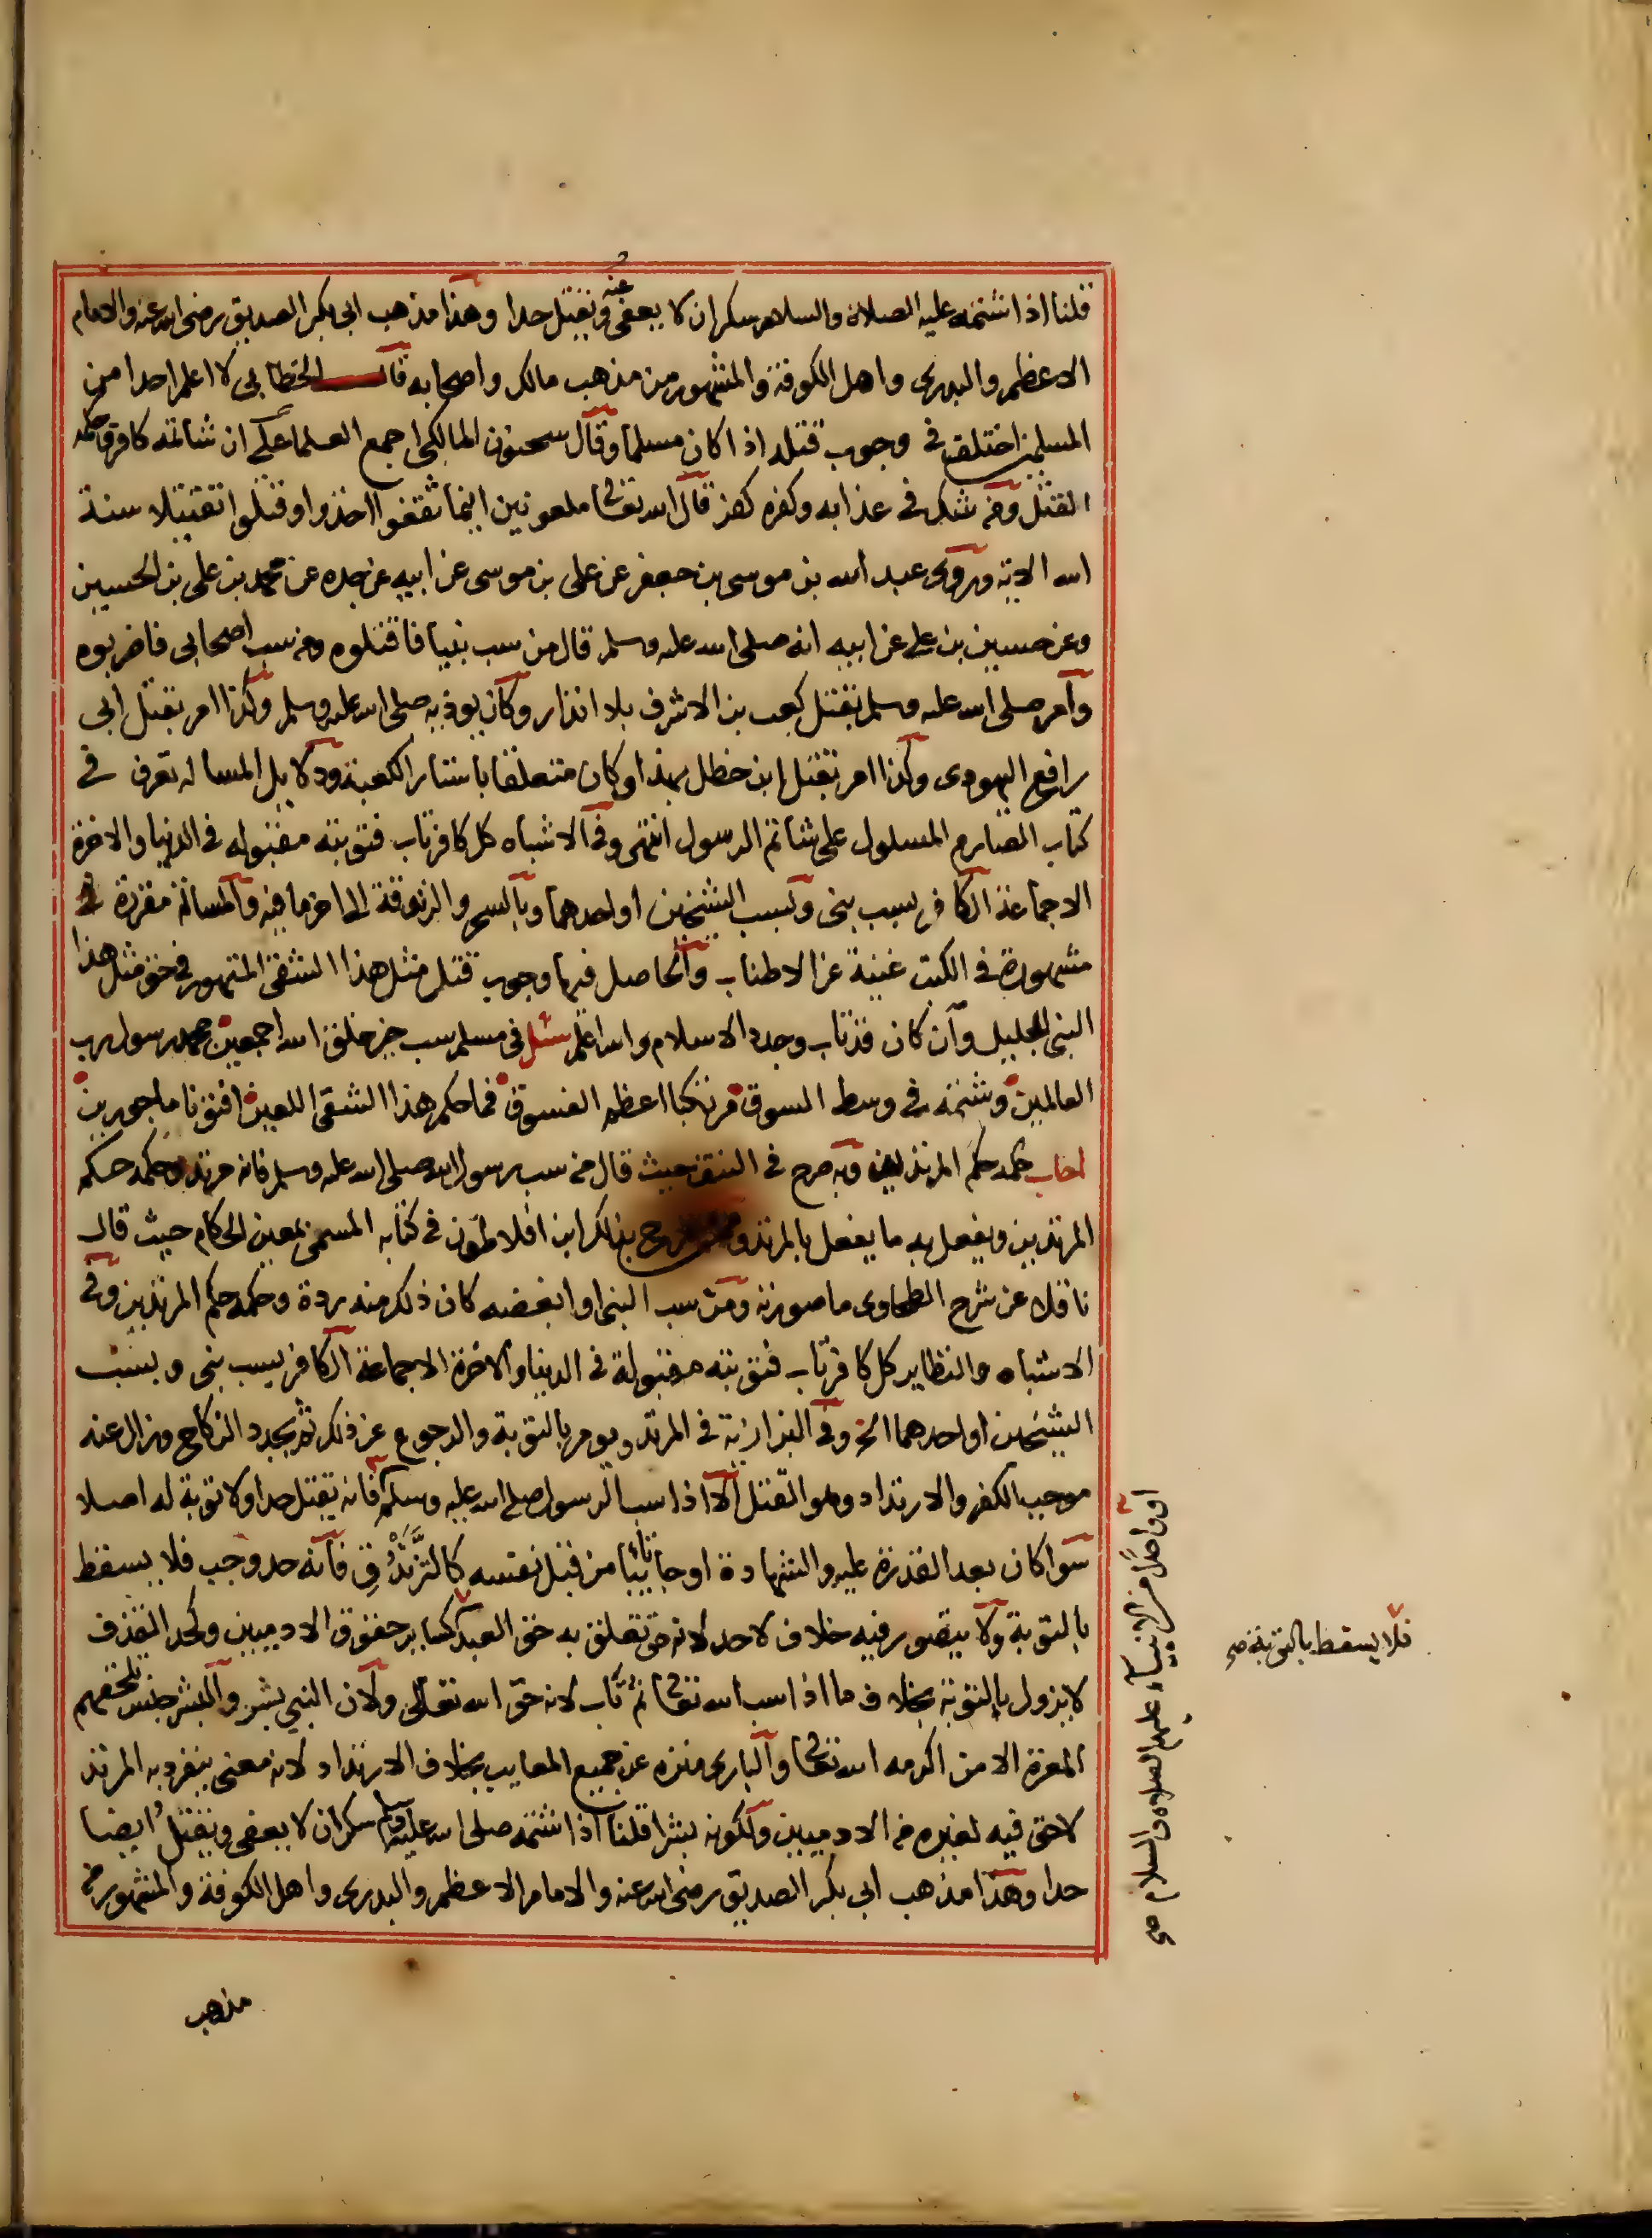 قلنا اذا شتمه عليه الصلاة والسلام سكران لا يعفى عنه ويقتل حدا وهذا مذهب ابي بكر الصديق رضي الله عنه والامام
الاعظم والبدرى واهل الكوفة والمشهور من مذهب مالك واصحابه قال الخطابي لا اعلم احدا من
المسلمين اختلف في وجوب قتله اذا كان مسلما وقال سحنون المالكي اجمع العلما على ان شاتمه كافر وحكمه
القتل ومن شك في عذابه وكفره كفر قال الله تعالى ملعونين اينما ثقفوا اخذوا وقتلوا تقتيلا سنة
الله الاية وروى عبد الله بن موسى بن جعفر عن على بن موسى عن ابيه عن جده عن محمد بن على بن الحسين
وعن حسين بن على عن ابيه انه صلى الله عليه وسلم قال من سب نبيا فاقتلوه ومن سب اصحابي فاضربوه
وامر صلى الله عليه وسلم بقتل كعب بن الاشرف بلا انذار وكان يوذيه صلى الله عليه وسلم وكذا امر بقتل ابى
رافع اليهودى وكذا امر بقتل ابن خطل بهذا وكان متعلقا باستار الكعبة ودلايل المساله تعرف في
كتاب الصارم المسلول على شاتم الرسول انتهى وفى الاشباه كل كافر تاب فتوبته مقبوله في الدنيا والاخرة
الا جماعة الكافر بسب نبى وبسب الشيخين او احدهما وبالسحر والزندقة الى اخر ما فيه والمسالة مقررة
مشهورة في الكتب غنية عن الاطناب والحاصل فيها وجوب قتل مثل هذا الشقى المتهور في حق مثل هذا
النبى الجليل وان كان قد تاب وجدد الاسلام والله اعلم سئل في مسلم سب خير خلق الله اجمعين محمد رسول رب
العالمين وشتمه في وسط السوق مرتكبا اعظم الفسوق فما حكم هذا الشقى اللعين افتونا ماجورين
اجاب حكمه حكم المرتدين وبه صرح في النتف حيث قال من سب رسول الله صلى الله عليه وسلم فانه مرتد وحكمه حكم
المرتدين ويفعل به ما يفعل بالمرتد وممن صرح بذلك ابن افلاطون في كتابه المسمى بمعين الحكام حيث قال
ناقلا عن شرح الطحاوى ما صورته ومن سب النبى او ابغضه كان ذلك منه ردة وحكمه حكم المرتدين وفى
الاشباه والنظاير كل كافر تاب فتوبته مقبولة في الدنيا والاخرة الا جماعة الكافر بسب نبى وبسب
الشيخين او احدهما الخ وفى البزازية في المرتد ويومر بالتوبة والرجوع عن ذلك ثم يجدد النكاح وزال عنه
موجب الكفر والارتداد وهو القتل الا اذا سب الرسول صلى الله عليه وسلم فانه يقتل حدا ولا توبة له اصلا
سوا كان بعد القدرة عليه والشهادة او جا تائبا من قبل نفسه كالتزندق فانه حد وجب فلا يسقط
بالتوبة ولا يتصور فيه خلاف لاحد لانه حق تعلق به حق العبد كساير حقوق الادميين وكحد القذف
لا يزول بالتوبة بخلاف ما اذا سب الله تعالى ثم تاب لانه حق الله تعالى ولان النبي بشر والبشر جنس تلحقهم
المعرة الا من اكرمه الله تعالى والبارى منزه عن جميع المعايب بخلاف الارتداد لانه معنى ينفرد به المرتد
لا حق فيه لغيره من الادميين ولكونه بشرا قلنا اذا شتمه صلى الله عليه وسلم سكران لا يعفى ويقتل ايضا
حدا وهذا مذهب ابى بكر الصديق رضى الله عنه والامام الاعظم والبدرى واهل الكوفة والمشهور من
مذهب
او واحدا من الانبياء عليهم الصلاة والسلام صح
فلا يسقط بالتوبة صح